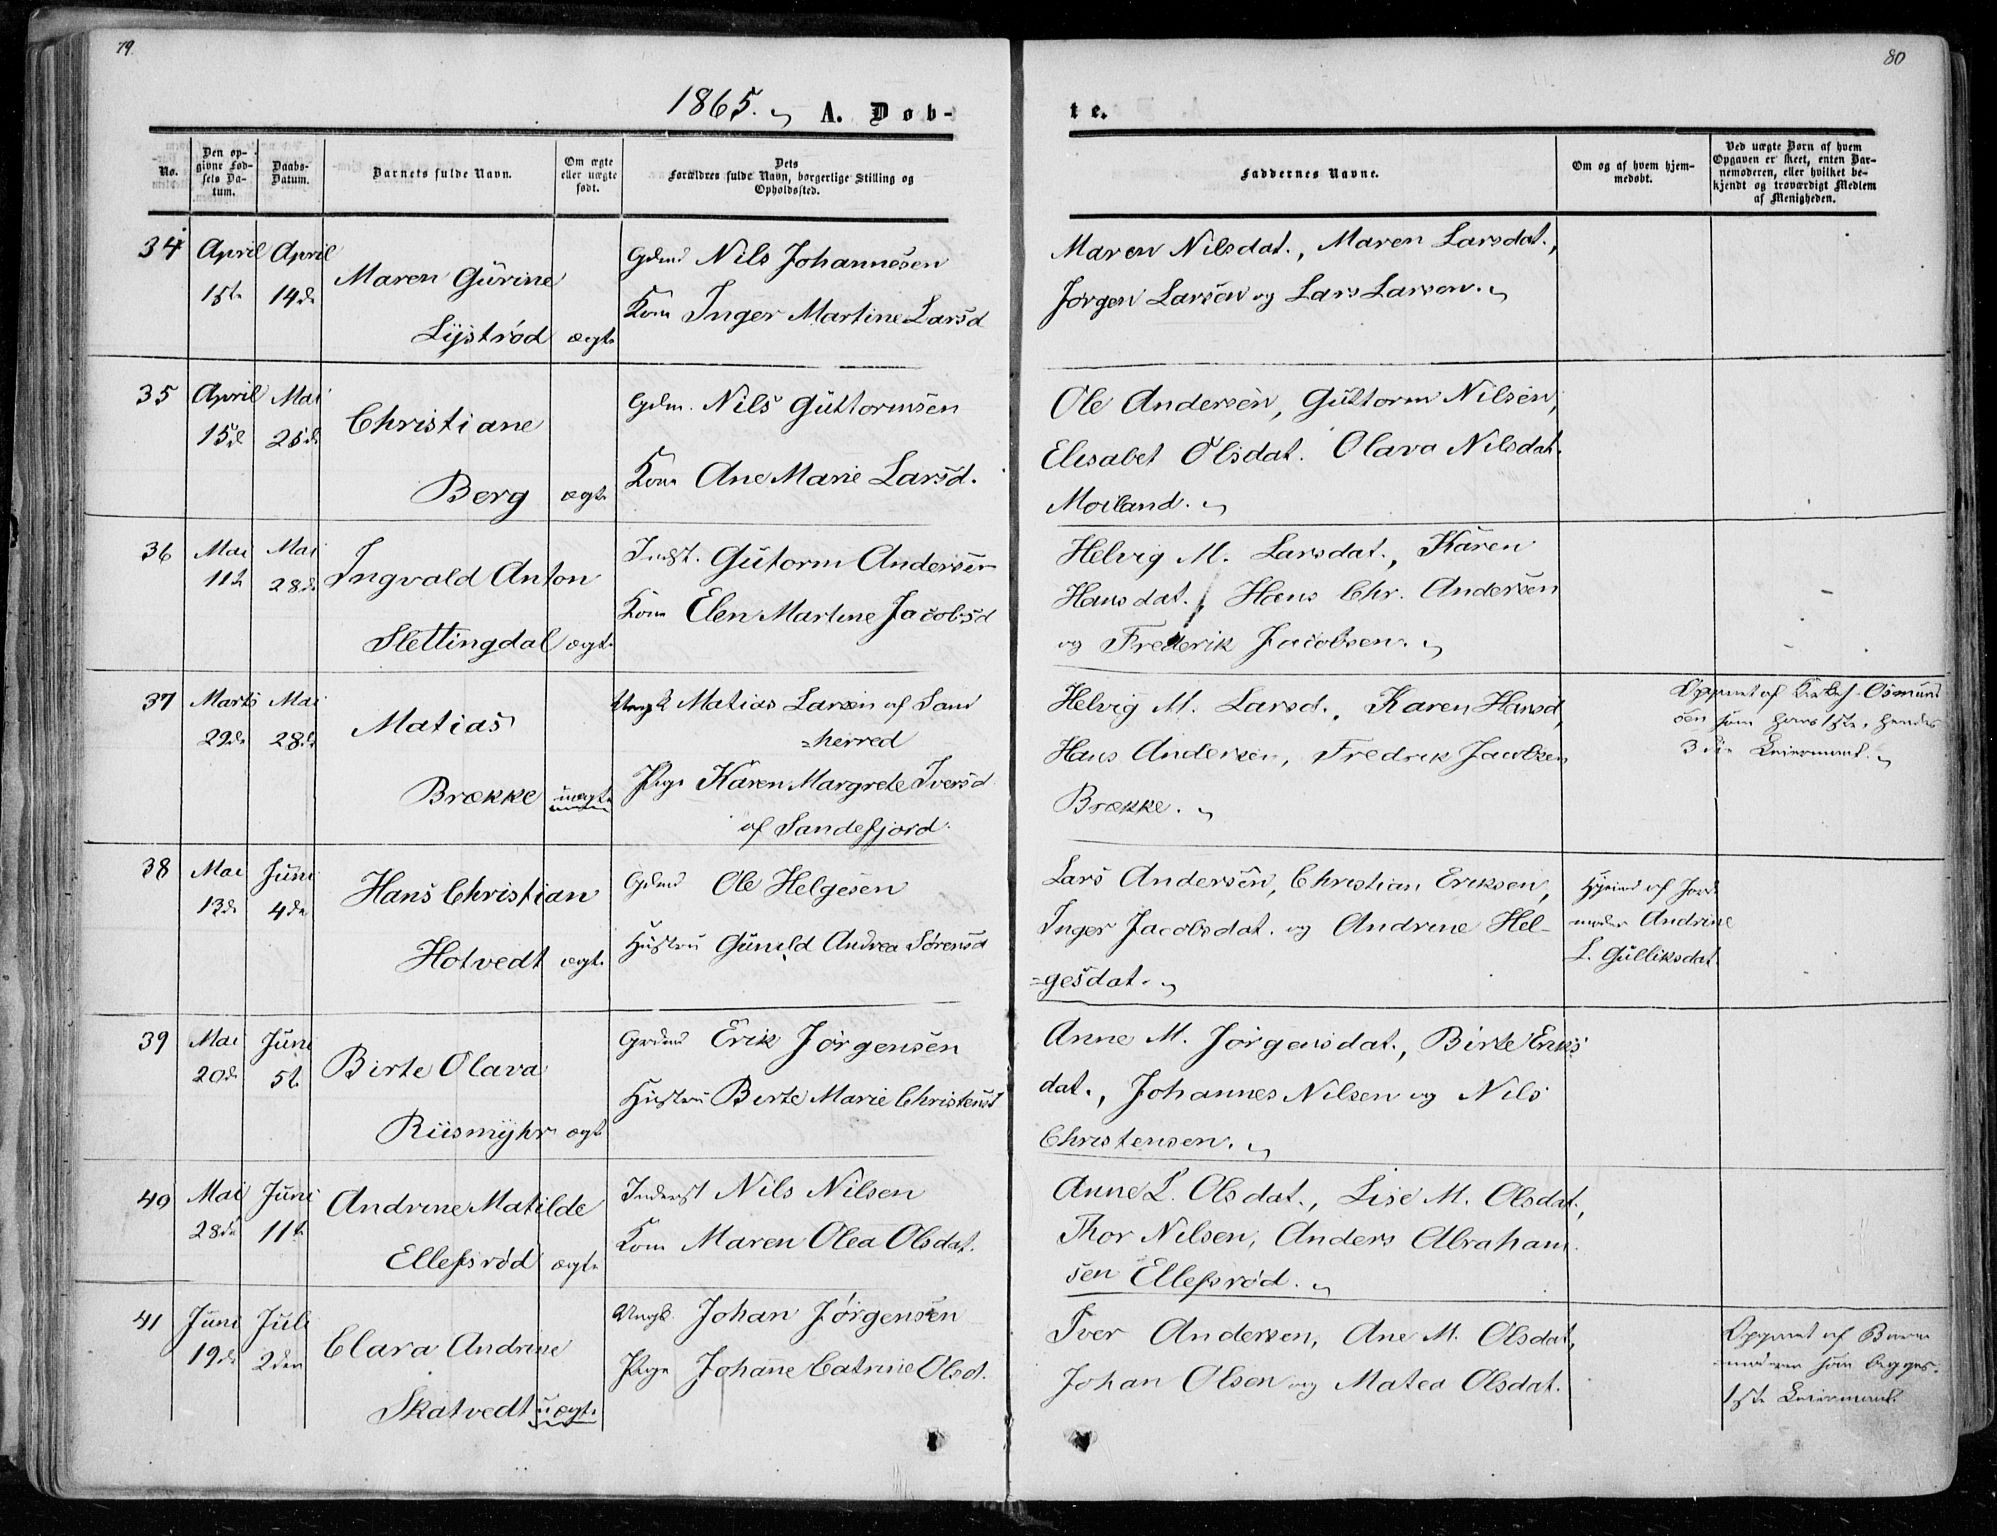 79.
80
1865. A. Døb-
te.
No.
Den op-
givne Fød-
sels Da-
tum.
Daabs-
Datum.
Barnets fulde Navn.
Om ægte
eller uægte
født.
Dets
Forældres fulde Navn, borgerlige Stilling og
Opholdssted.
Faddernes Navne.
Om og af hvem hjem-
medøbt.
Ved uægte Børn af hvem
Opgaven er skeet, enten Bar-
nemoderen, eller hvilket be-
kjendt og troværdigt Medlem
af Menigheden.
34
April
April
14de
Maren Gurine
Lystrød
ægte
Gdmd Nils Johannesen
Kone Inger Martine Larsd
Maren Nilsdat., Maren Larsdat.,
Jørgen Larsen og Lars Larsen.
35
April
15de
Mai
25de
Christiane
Berg
ægte
Gdm. Nils Guttormsen
Kone Ane Marie Larsd.
Ole Andersen, Guttorm Nilsen,
Elisabet Olsdat. Olava Nilsdat.
Moiland.
36
Mai
11te
Mai
28de
Ingvald Anton
Slettingdal
ægte
Indst. Gutorm Andersen
Kone Elen Martine Jacobsd
Helvig M. Larsdat., Karen
Hansdat., Hans Chr. Andersen
og Frederik Jacobsen.
37
Marts
29de
Mai
28de
Matias
Brække
uægte
Ungk Matias Larsen af Sand
=herred
Pige Karen Margrete Iversd
af Sandefjord.
Helvig M. Larsd., Karen Hansd,
Hans Andersen, Fredrik Jacobsen
Brække.
Opgivet af Osmund
sen som hans 1ste, hendes
3die Leiermaal.
38
Mai
13de
Juni
4de
Hans Christian
Hotvedt
ægte
Gdmd Ole Helgesen
Hustru Gunild Andrea Sørensd
Lars Andersen, Christian Eriksen,
Inger Jacobsdat. og Andrine Hel-
=gesdat.
af Jord-
moder Andrine
L. Gulliksdat.
39
Mai
20de
Juni
5te
Birte Olava
Riismyhr
ægte
Grdmd Erik Jørgensen
Hustru Birte Marie Christensd
Anne M. Jørgensdat., Birte Eriks
dat., Johannes Nilsen og Nils
Christensen.
40
Mai
28de
Juni
11te
Andrine Matilde
Ellefsrød
ægte
Inderst Nils Nilsen
Kone Maren Olea Olsdat.
Anne L. Olsdat., Lise M. Olsdat.,
Thor Nilsen, Anders Abraham
sen Ellefsrød.
41
Juni
19de
Juli
2den
Clara Andrine
Skatvedt
uægte
Ungk. Johan Jørgensen
Pige Johanne Catrine Olsd.
Iver Andersen, Ane M. Olsdat,
Johan Olsen og Matea Olsdat.
Opgivet af Barne
moderen som begges
1ste Leiermaal.